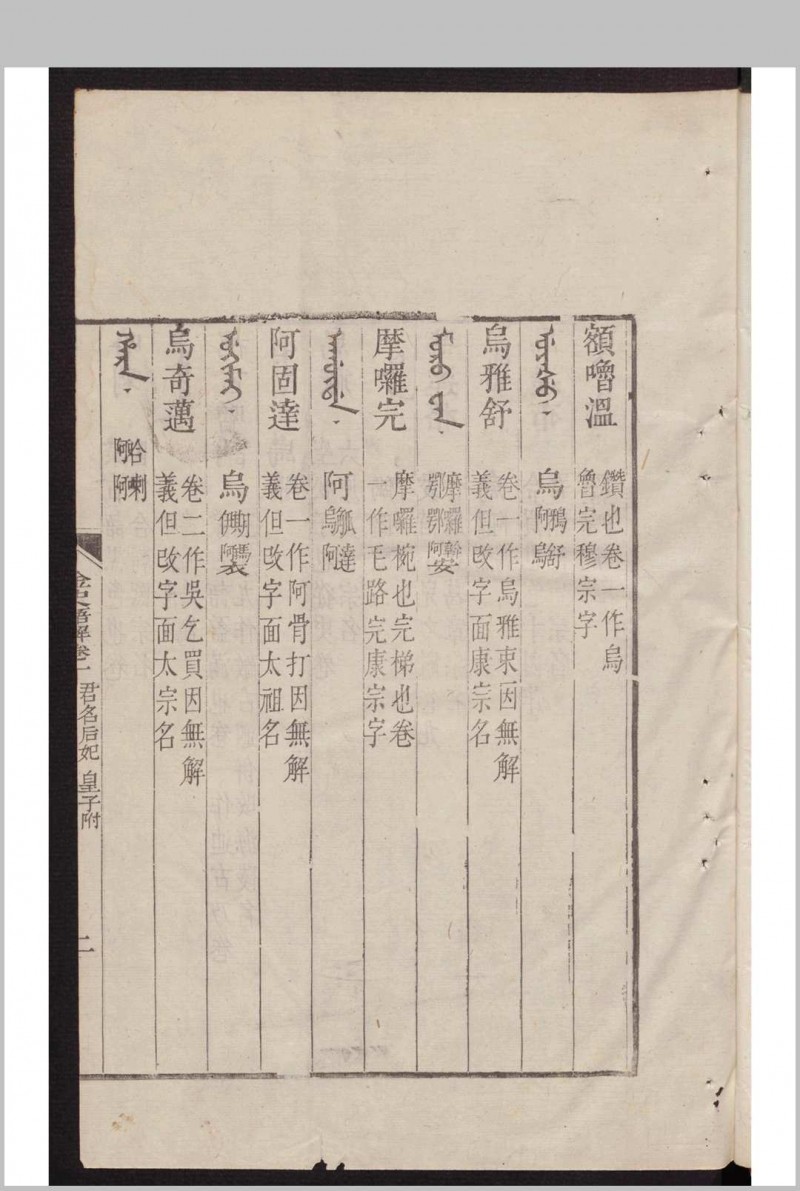 額嚕溫 鑽也卷一作烏魯完穆宗字
ᡠᠶᠠᡧᡠ 烏鴉舒阿烏
烏雅舒 卷一作烏雅束因無解義但改字面康宗名
摩囉斡安鄂鄂阿
摩囉完 摩囉椀也完梯也卷一作毛路完康宗字
ᠠᡤᡡᡩᠠ 阿呱達烏阿
阿固達 卷一作阿骨打因無解義但改字面太祖名
烏期馬伊阿衣
烏奇邁 卷二作吳乞買因無解義但改字面太宗名
哈喇阿阿
金史語解卷一 君名后妃 皇子附 二